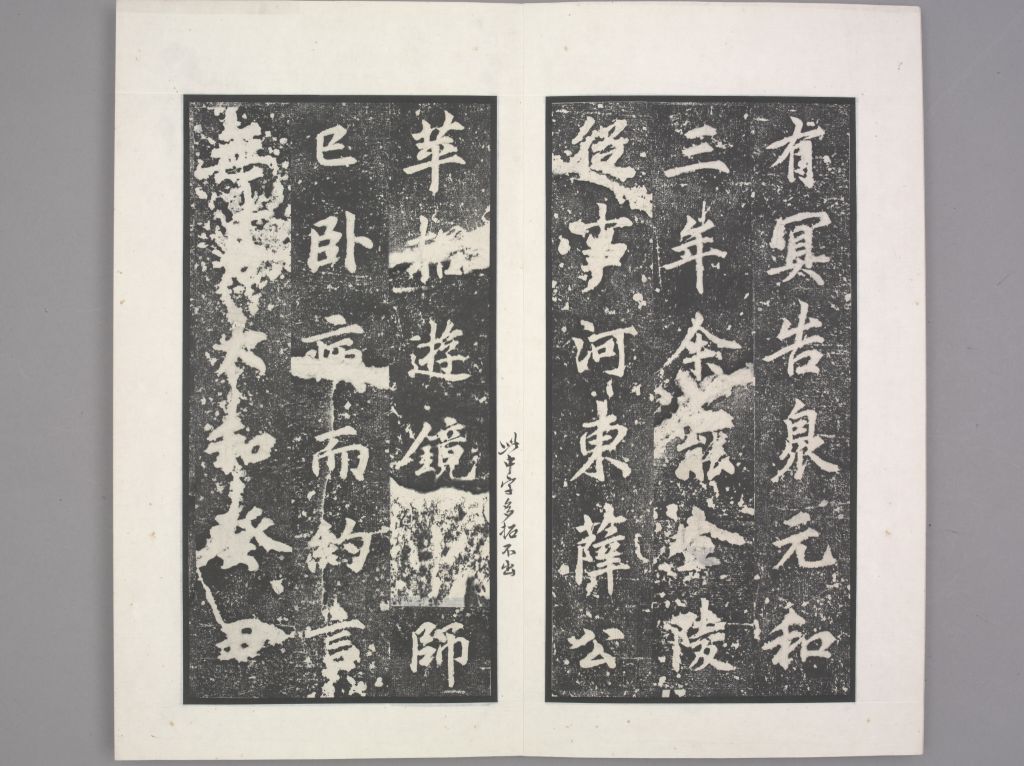 有冥告臮元和
三年余罷金陵
從事河東薛公
苹招遊鏡師
此中字多拓不出
已臥病而約言
無大和癸丑